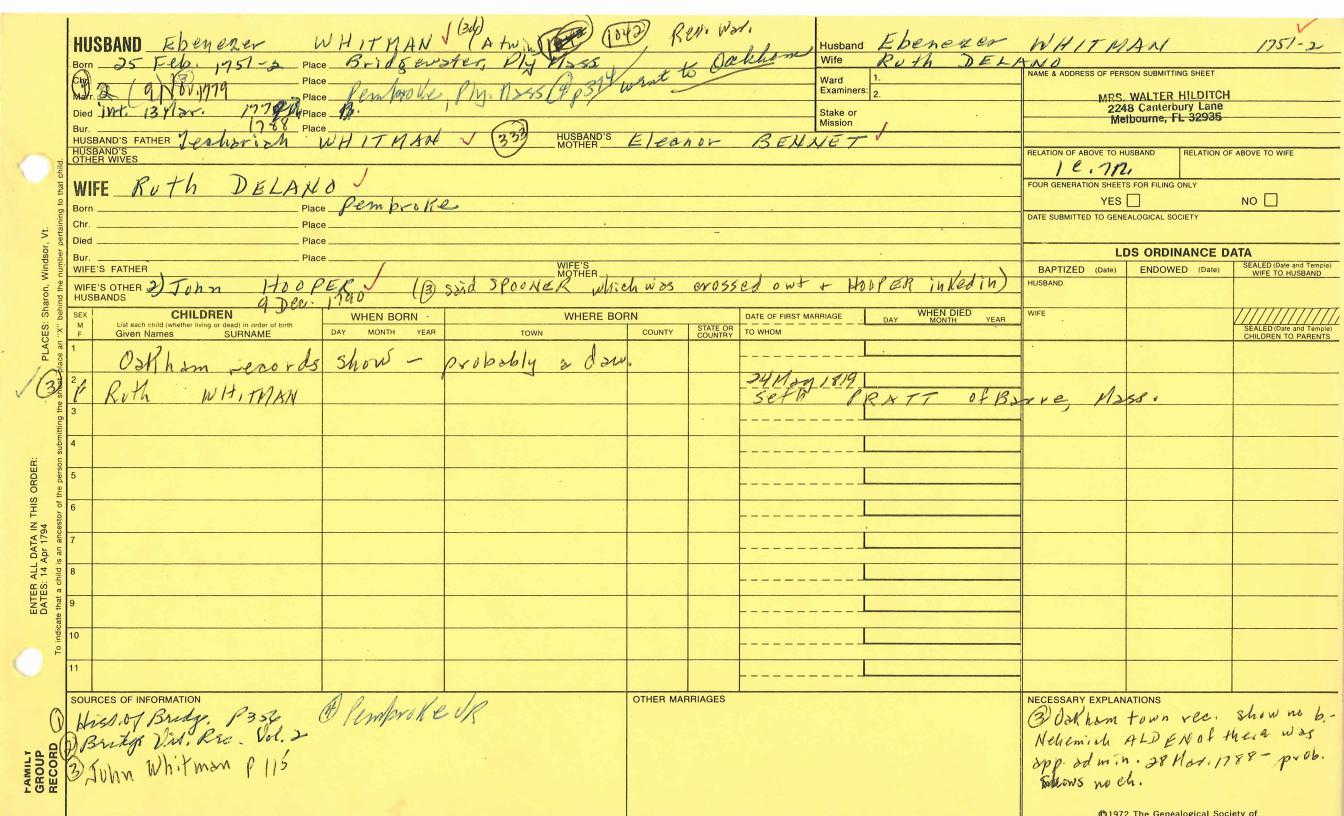 HUSBAND Ebenezer WHITMAN (3d) (A twin) 1042 Rev. War.
Born 25 Feb. 1751-2 Place Bridgewater, Ply Mass
Chr. Place went to Oackham
Marr. 1779 Place Pembroke, Ply. Mass
Died int. 13 Mar. Place
Bur. 1788 Place
HUSBAND'S FATHER Zechariah WHITMAN 333 HUSBAND'S MOTHER Eleanor BENNET
HUSBAND'S OTHER WIVES
WIFE Ruth DELANO
Born Place Pembroke
Chr. Place
Died Place
Bur. Place
WIFE'S FATHER WIFE'S MOTHER
WIFE'S OTHER HUSBANDS 2) John HOOPER (3 said SPOONER which was crossed out + HOOPER inked in)
9 Dec. 1790
Husband Ebenezer WHITMAN 1751-2
Wife Ruth DELANO
Ward Examiners: 1.
2.
Stake or Mission
NAME & ADDRESS OF PERSON SUBMITTING SHEET
MRS. WALTER HILDITCH
2248 Canterbury Lane
Melbourne, FL 32935
RELATION OF ABOVE TO HUSBAND RELATION OF ABOVE TO WIFE
FOUR GENERATION SHEETS FOR FILING ONLY
YES NO
DATE SUBMITTED TO GENEALOGICAL SOCIETY
LDS ORDINANCE DATA
BAPTIZED (Date) ENDOWED (Date) SEALED (Date and Temple) WIFE TO HUSBAND
HUSBAND
WIFE
SEALED (Date and Temple) CHILDREN TO PARENTS
SEX M F CHILDREN List each child (whether living or dead) in order of birth Given Names SURNAME
WHEN BORN DAY MONTH YEAR
WHERE BORN TOWN COUNTY STATE OR COUNTRY
DATE OF FIRST MARRIAGE TO WHOM
WHEN DIED DAY MONTH YEAR
1 Oakham records show - probably a dau.
2 F Ruth WHITMAN 24 May 1819
Seth PRATT of Barre, Mass.
3
4
5
6
7
8
9
10
11
SOURCES OF INFORMATION
1 Hist. of Bridg. P 356 4 Pembroke VR
2 Bridge Vit. Rec. Vol. 2
3 John Whitman P 115
OTHER MARRIAGES
NECESSARY EXPLANATIONS
3 Oakham town rec. show no b.-
Nehemiah ALDEN of there was
app. admin. 28 Mar. 1788 - prob.
shows no ch.
©1972 The Genealogical Society of
FAMILY GROUP RECORD
ENTER ALL DATA IN THIS ORDER:
DATES: 14 Apr 1794
PLACES: Sharon, Windsor, Vt.
To indicate that a child is an ancestor of the person submitting the sheet, place an "X" behind the number pertaining to that child.
3